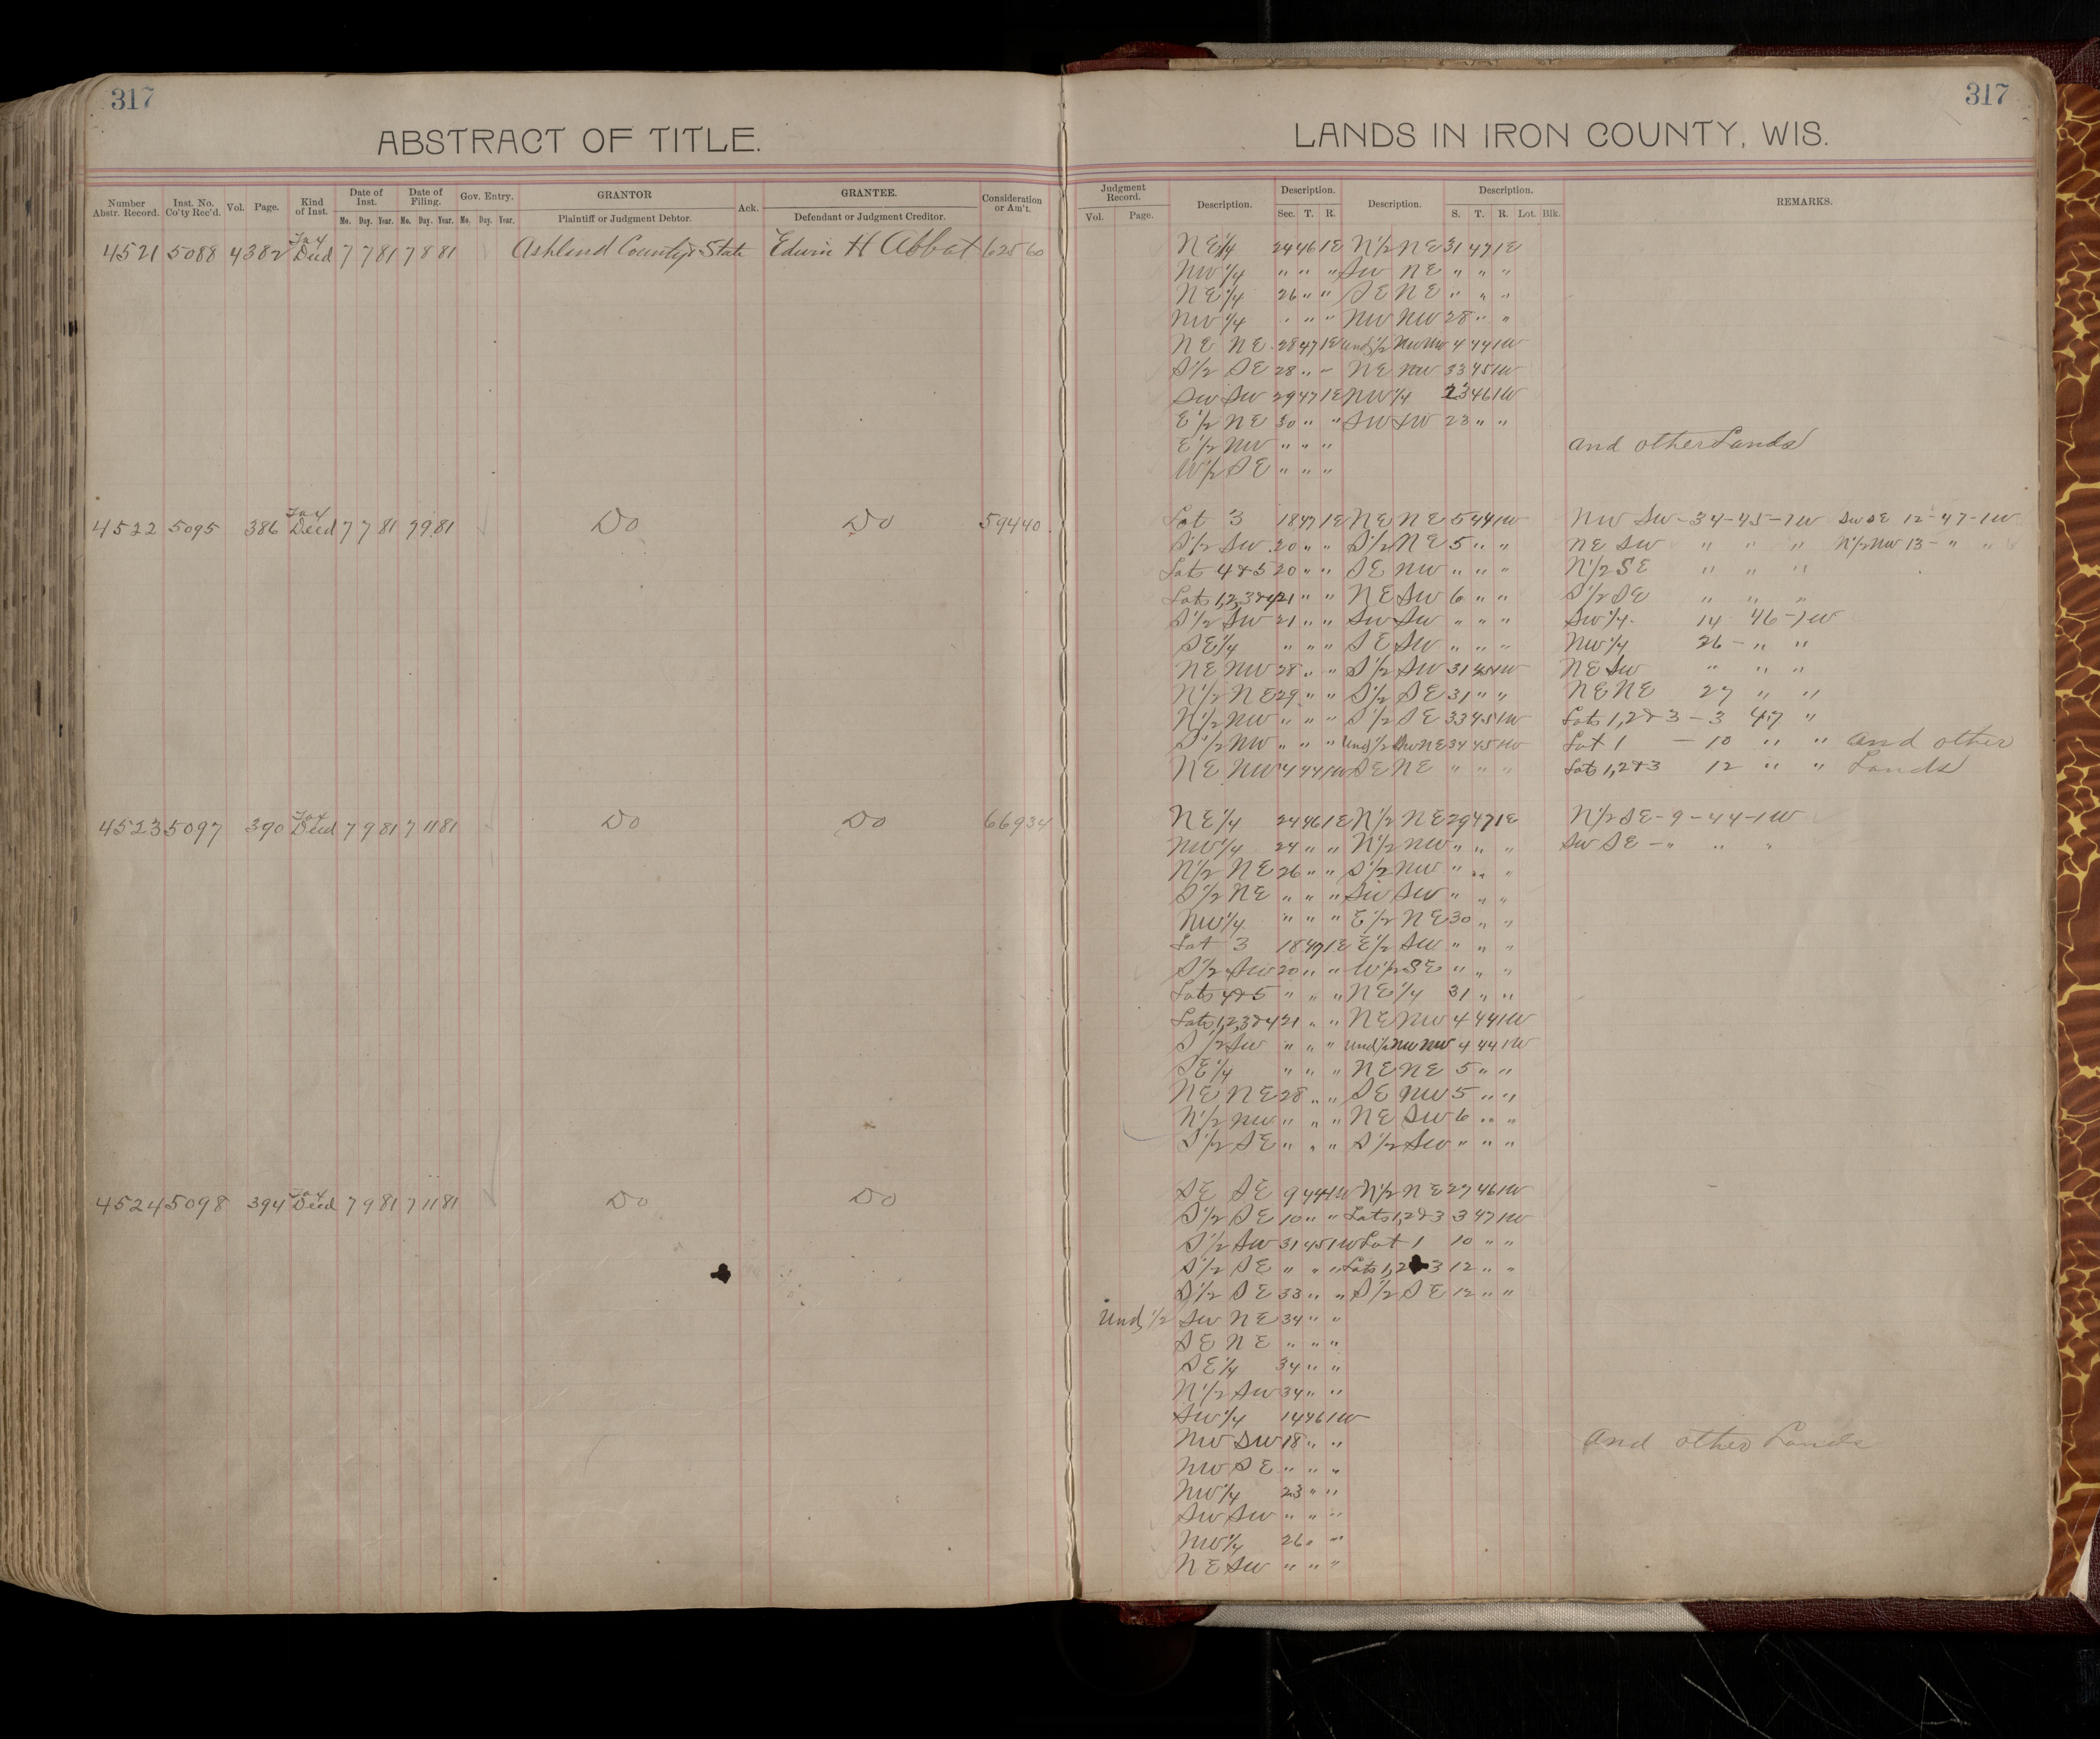 317
ABSTRACT OF TITLE.
Number Abstr. Record. Inst. No. Co'ty Rec'd. Vol. Page. Kind of Inst. Date of Inst. Mo. Day. Year. Date of Filing. Mo. Day. Year. Gov. Entry. Mo. Day. Year. GRANTOR Plaintiff or Judgment Debtor. Ack. GRANTEE. Defendant or Judgment Creditor. Consideration or Am't.
4521 5088 4 382 Tax Deed 7 7 81 7 8 81 Ashland County & State Edwin H Abbot 625 60
4522 5095 386 Tax Deed 7 7 81 7 9 81 Do Do 594 40
4523 5097 390 Tax Deed 7 9 81 7 11 81 Do Do 669 34
4524 5098 394 Tax Deed 7 9 81 7 11 81 Do Do
317
LANDS IN IRON COUNTY, WIS.
Judgment Record. Vol. Page. Description. Description. Sec. T. R. Description. Description. S. T. R. Lot. Blk. REMARKS.
NE 1/4 24 46 1E N 1/2 NE 31 47 1E
NW 1/4 " " " SW NE " " "
NE 1/4 26 " " SE NE " " "
NW 1/4 " " " NW NW 28 " "
NE NE 28 47 1E Und 1/2 NW NW 4 44 1W
S 1/2 SE 28 " " NE NW 33 45 1W
SW SW 29 47 1E NW 1/4 23 46 1W
E 1/2 NE 30 " " SW SW 23 " "
E 1/2 NW " " " and other Lands
W 1/2 SE " " "
Lot 3 18 47 1E NE NE 5 44 1W NW SW - 34 - 45 - 1W SW SE 12 - 47 - 1W
S 1/2 SW 20 " " S 1/2 NE 5 " " NE SW " " " N 1/2 NW 13 - " "
Lots 4 & 5 20 " " SE NW " " " N 1/2 SE " " "
Lots 1,2,3 & 4 21 " " NE SW 6 " " S 1/2 SE " " "
S 1/2 SW 21 " " SW SW " " " SW 1/4 14 46 - 1W
SE 1/4 " " " SE SW " " " NW 1/4 26 - " "
NE NW 28 " " S 1/2 SW 31 45 1W NE SW " " "
N 1/2 NE 29 " " S 1/2 SE 31 " " NE NE 27 " "
N 1/2 NW " " " S 1/2 SE 33 45 1W Lots 1,2 & 3 - 3 47 "
S 1/2 NW " " " Und 1/2 SW NE 34 45 1W Lot 1 - 10 " " and other
NE NW 4 44 1W SE NE " " " Lots 1,2 & 3 12 " " Lands
NE 1/4 24 46 1E N 1/2 NE 29 47 1E N 1/2 SE - 9 - 44 - 1W
NW 1/4 24 " " N 1/2 NW " " " SW SE - " " "
N 1/2 NE 26 " " S 1/2 NW " " "
S 1/2 NE " " " SW SW " " "
NW 1/4 " " " E 1/2 NE 30 " "
Lot 3 18 47 1E E 1/2 SW " " "
S 1/2 SW 20 " " W 1/2 SE " " "
Lots 4 & 5 " " " NE 1/4 31 " "
Lots 1,2,3 & 4 21 " " NE NW 4 44 1W
S 1/2 SW " " " Und 1/2 NW NW 4 44 1W
SE 1/4 " " " NE NE 5 " "
NE NE 28 " " SE NW 5 " "
N 1/2 NW " " " NE SW 6 " "
S 1/2 SE " " " S 1/2 SW " " "
SE SE 9 44 1W N 1/2 NE 27 46 1W
S 1/2 SE 10 " " Lots 1,2 & 3 3 47 1W
S 1/2 SW 31 45 1W Lot 1 10 " "
S 1/2 SE " " " Lots 1,2 3 12 " "
S 1/2 SE 33 " " S 1/2 SE 12 " "
Und 1/2 SW NE 34 " "
SE NE " " "
SE 1/4 34 " "
N 1/2 SW 34 " "
SW 1/4 14 46 1W
NW SW 18 " " and other Lands
NW SE " " "
NW 1/4 23 " "
SW SW " " "
NW 1/4 26 " "
NE SW " " "